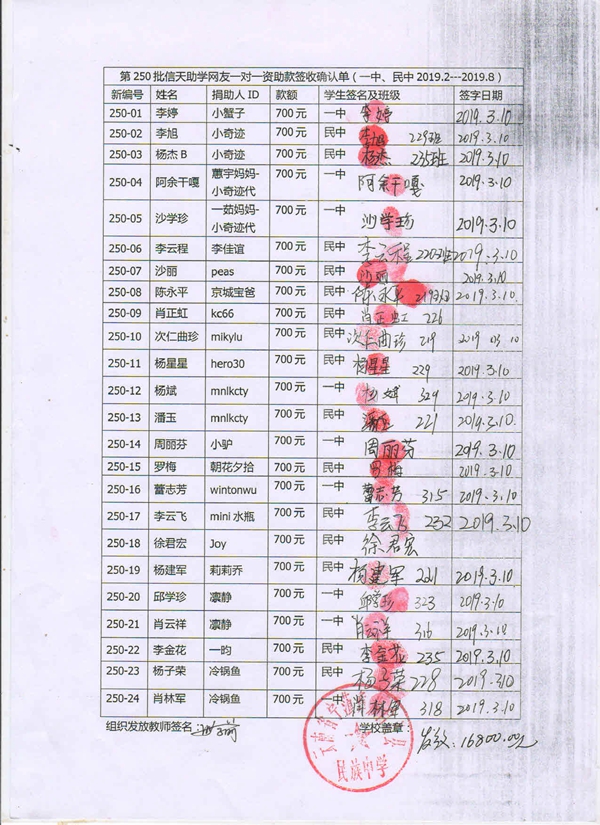 第 250 批信天助学网友一对一资助款签收确认单（一中、民中 2019.2---2019.8）
新编号 姓名 捐助人 ID 款额 学生签名及班级 签字日期
250-01 李婷 小蟹子 700 元 一中 李婷 2019.3.10
250-02 李旭 小奇迹 700 元 民中 李旭 229班 2019.3.10
250-03 杨杰 B 小奇迹 700 元 民中 杨杰 235班 2019.3.10
250-04 阿余干嘎 蕙宇妈妈-小奇迹代 700 元 一中 阿余干嘎 2019.3.10
250-05 沙学珍 一茹妈妈-小奇迹代 700 元 一中 沙学珍 2019.3.10
250-06 李云程 李佳谊 700 元 民中 李云程 220班 2019.3.10
250-07 沙丽 peas 700 元 民中 沙丽 2019.3.10
250-08 陈永平 京城宝爸 700 元 民中 陈永平 219班 2019.3.10
250-09 肖正虹 kc66 700 元 民中 肖正虹 226
250-10 次仁曲珍 mikylu 700 元 民中 次仁曲珍 219 2019 03 10
250-11 杨星星 hero30 700 元 民中 杨星星 229 2019.3.10
250-12 杨斌 mnlkcty 700 元 一中 杨斌 329 2019.3.10
250-13 潘玉 mnlkcty 700 元 民中 潘玉 221 2019.3.10
250-14 周丽芬 小驴 700 元 一中 周丽芬 2019.3.10
250-15 罗梅 朝花夕拾 700 元 民中 罗梅 2019.3.10
250-16 蕾志芳 wintonwu 700 元 一中 蕾志芳 315 2019.3.10
250-17 李云飞 mini 水瓶 700 元 民中 李云飞 232 2019.3.10
250-18 徐君宏 Joy 700 元 民中 徐君宏
250-19 杨建军 莉莉乔 700 元 民中 杨建军 221 2019.3.10
250-20 邱学珍 凛静 700 元 一中 邱学珍 323 2019.3.10
250-21 肖云祥 凛静 700 元 一中 肖云祥 316 2019.3.10
250-22 李金花 一昀 700 元 民中 李金花 235 2019.3.10
250-23 杨子荣 冷锅鱼 700 元 民中 杨子荣 228 2019.3.10
250-24 肖林军 冷锅鱼 700 元 一中 肖林军 318 2019.3.10
组织发放教师签名： 学校盖章：
发放：16800.00元
民族中学